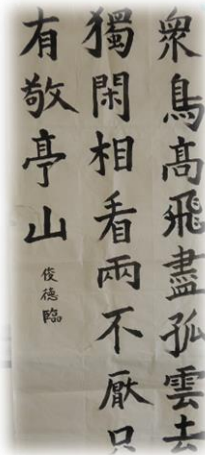 眾鳥髙飛盡孤雲去
獨閑相看兩不厭只
有敬亭山
俊德臨